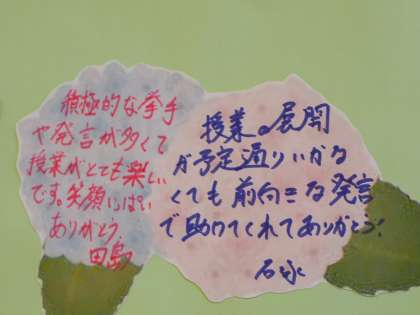 積極的な挙手
や発言が多くて
授業がとても楽しい
です。笑顔いっぱい
ありがとう。
田島
授業の展開
が予定通りいかな
くても前向きな発言
で助けてくれてありがとう！
石永